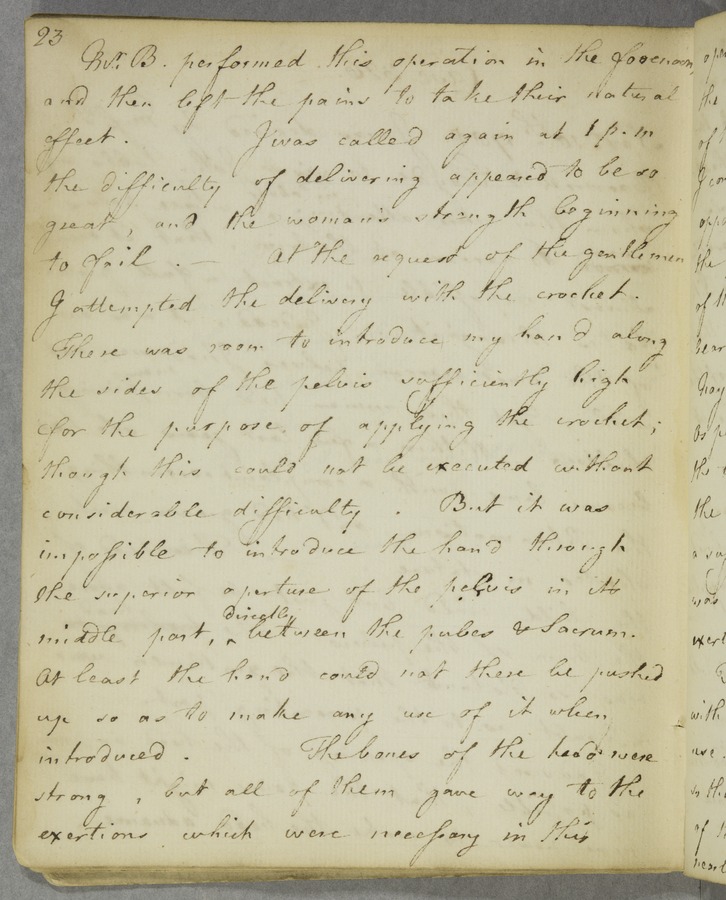 23
Mr. B. performed this operation in the forenoon,
and then left the pains to take their natural
effect. I was called again at 1 p.m
the difficulty of delivering appeared to be so
great, and the woman's strength beginning
to fail. — At the request of the gentlemen
I attempted the delivery with the crochet.
There was room to introduce my hand along
the sides of the pelvis sufficiently high
for the purpose of applying the crochet;
though this could not be executed without
considerable difficulty. But it was
impossible to introduce the hand through
the superior aperture of the pelvis in its
directly
middle part, ‸ between the pubes & Sacrum.
At least the hand could not there be pushed
up so as to make any use of it when
introduced. The bones of the head were
strong, but all of them gave way to the
exertions which were necessary in this